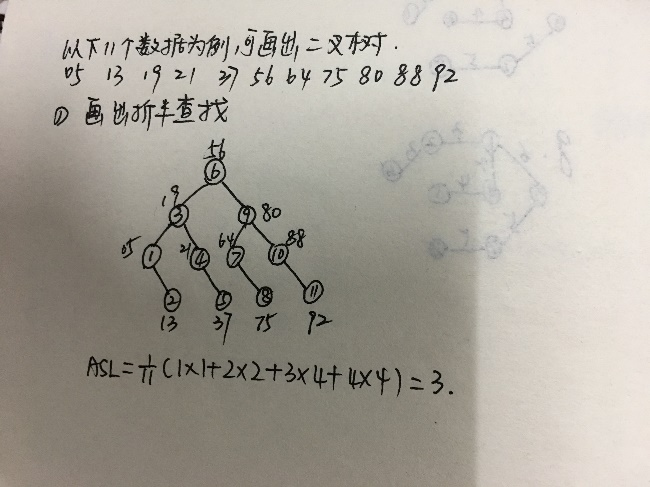 以下11个数据为例,可画出二叉树.
05 13 19 21 37 56 64 75 80 88 92
① 画出折半查找
56
6
19 3 9 80
05 1 21 4 64 7 10 88
2 5 8 11
13 37 75 92
ASL=1/11(1×1+2×2+3×4+4×4)=3.